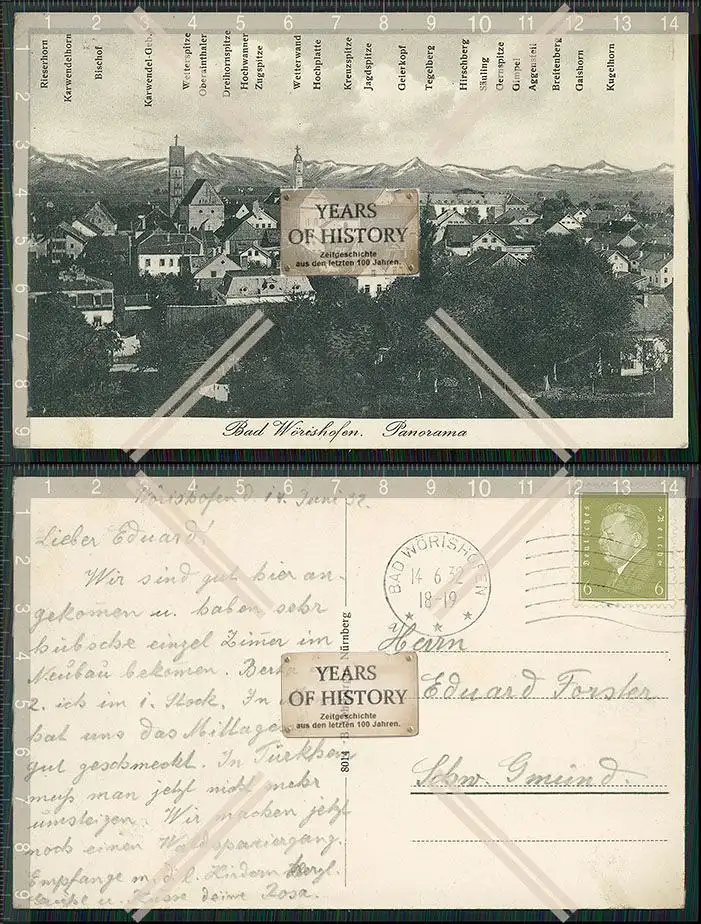 1 2 3 4 5 6 7 8 9 10 11 12 13 14
Rieserhorn
Karwendelhorn
Bischof
Karwendel-Geb.
Wetterspitze
Oberainthaler
Dreihornspitze
Hochwanner
Zugspitze
Wetterwand
Hochplatte
Kreuzspitze
Jagdspitze
Geierkopf
Tegelberg
Hirschberg
Säuling
Gernspitze
Gimpel
Aggenstein
Breitenberg
Gaishorn
Kugelhorn
2
3
4
5
6
7
8
9
YEARS
OF HISTORY
Zeitgeschichte
aus den letzten 100 Jahren.
Bad Wörishofen. Panorama
1 2 3 4 5 6 7 8 9 10 11 12 13 14
2
3
4
5
6
7
8
9
Wörishofen d. 14. Juni 32.
Lieber Eduard!
Wir sind gut hier an-
gekomen u. haben sehr
hübsche einzel Zimer im
Neubau bekomen. Berta
2. ich im 1. Stock. In
hat uns das Mittages
gut geschmeckt. In Türkheim
muß man jetzt nicht mehr
umsteigen. Wir machen jetzt
noch einen Waldspaziergang.
Empfange m. d. l. Kindern hergl.
Grüße u. Küsse deine Rosa.
8014
Nürnberg
YEARS
OF HISTORY
Zeitgeschichte
aus den letzten 100 Jahren.
BAD WÖRISHOFEN
14 6 32
18-19
a
Deutsches Reich
6 6
Herrn
Eduard Forster
Schw. Gmünd.